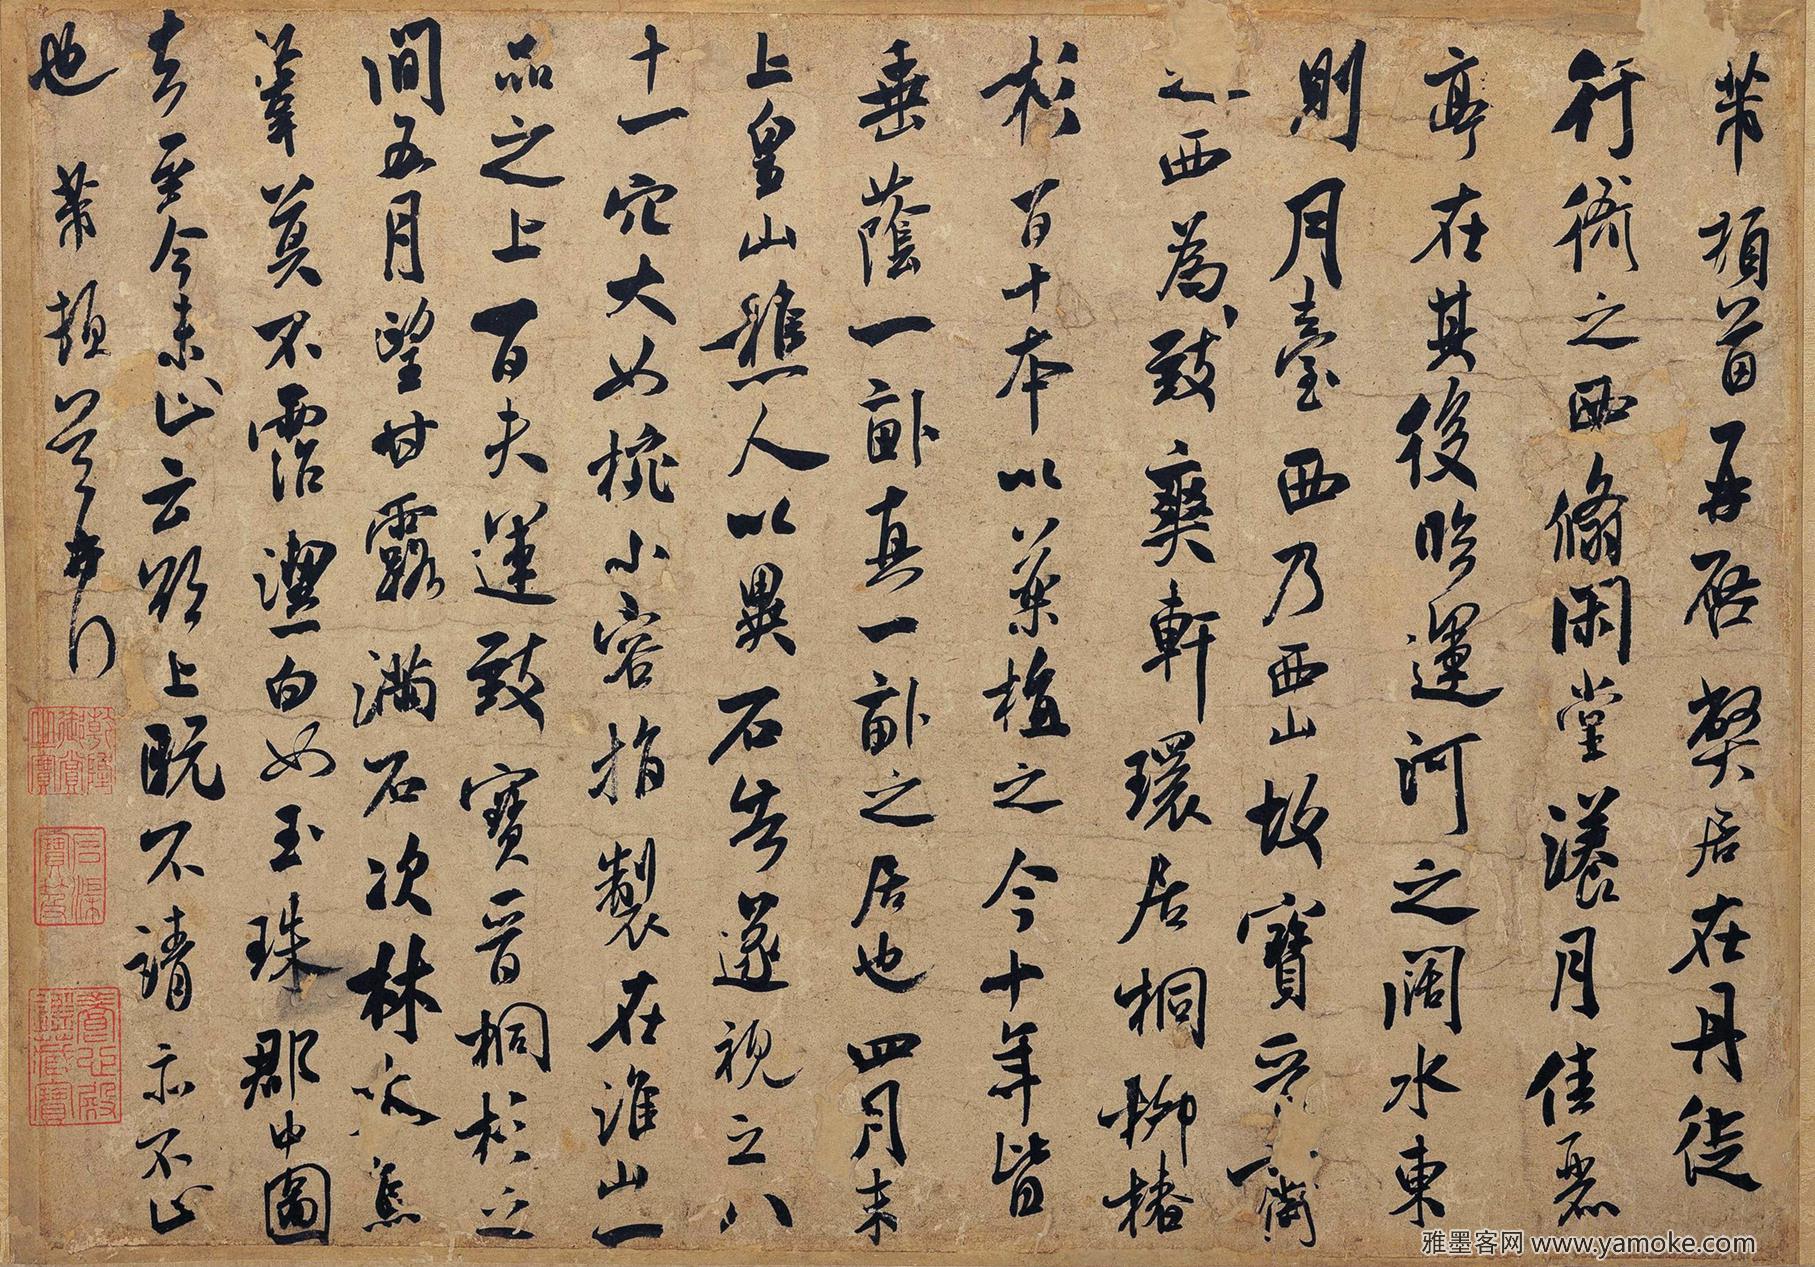 芾頓首再啟弊居在丹徒
行衙之西翛閑堂漾月佳麗
亭在其後臨運河之闊水東
則月臺西乃西山故寶晉齋
之西為致爽軒環居桐柳椿
杉百十本以藥植之今十年皆
垂蔭一畝真一畝之居也四月末
上皇山樵人以異石告遂視之八
十一穴大如椀小容指製在淮山一
品之上百夫運致寶晉桐杉之
間五月望甘露滿石次林焦
葦莫不霑潔白如玉珠郡中圖
去至今未止云欲上既不請亦不止
也 芾頓首再拜
乾隆御賞之寶
石渠寶笈
養心殿鑑藏寶
雅墨客网 www.yamoke.com